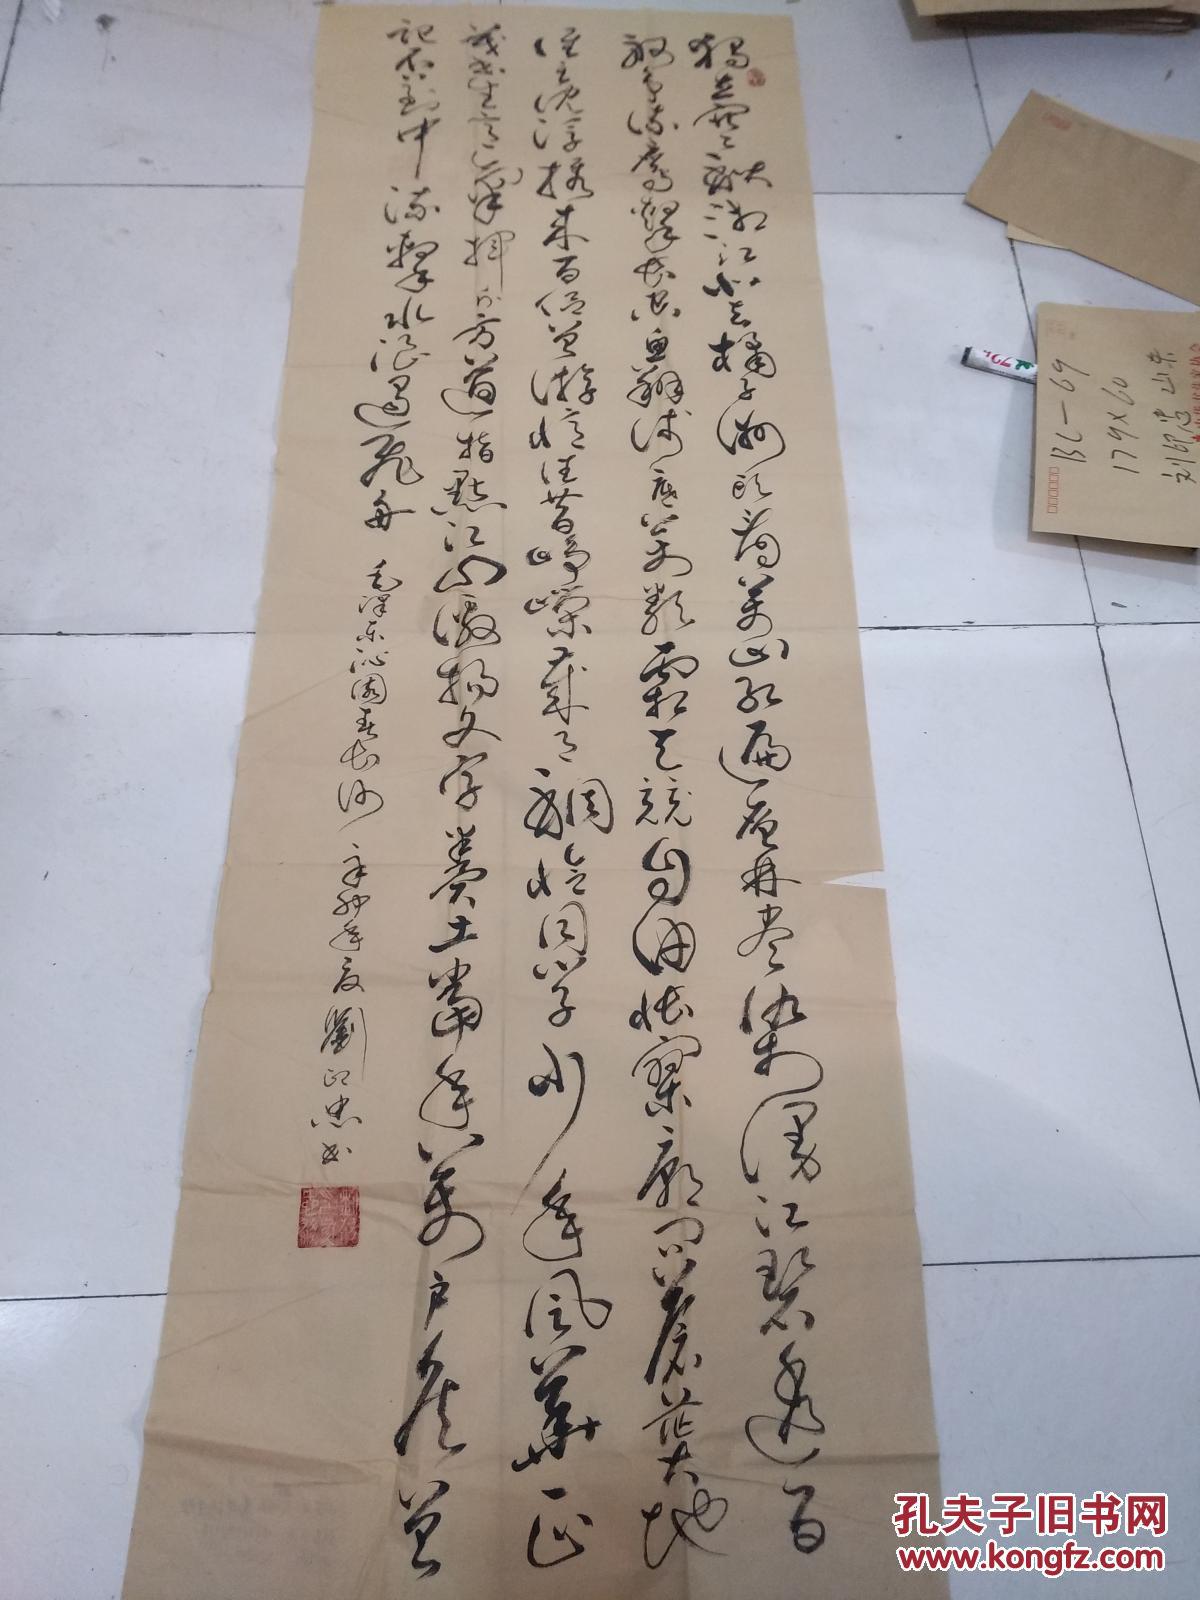 獨立寒秋湘江北去橘子洲頭看萬山紅遍層林盡染漫江碧透百
舸爭流鷹擊長空魚翔淺底萬類霜天競自由悵寥廓問蒼茫大地
誰主沈浮携來百侶曾游憶往昔崢嶸歲月稠恰同學少年風華正
茂書生意氣揮斥方遒指點江山激揚文字糞土當年萬戶侯曾
記否到中流擊水浪遏飛舟
毛澤東沁園春長沙 辛卯年夏 劉印忠書
BL-69
179X60
刘印忠 山东
孔夫子旧书网
www.kongfz.com